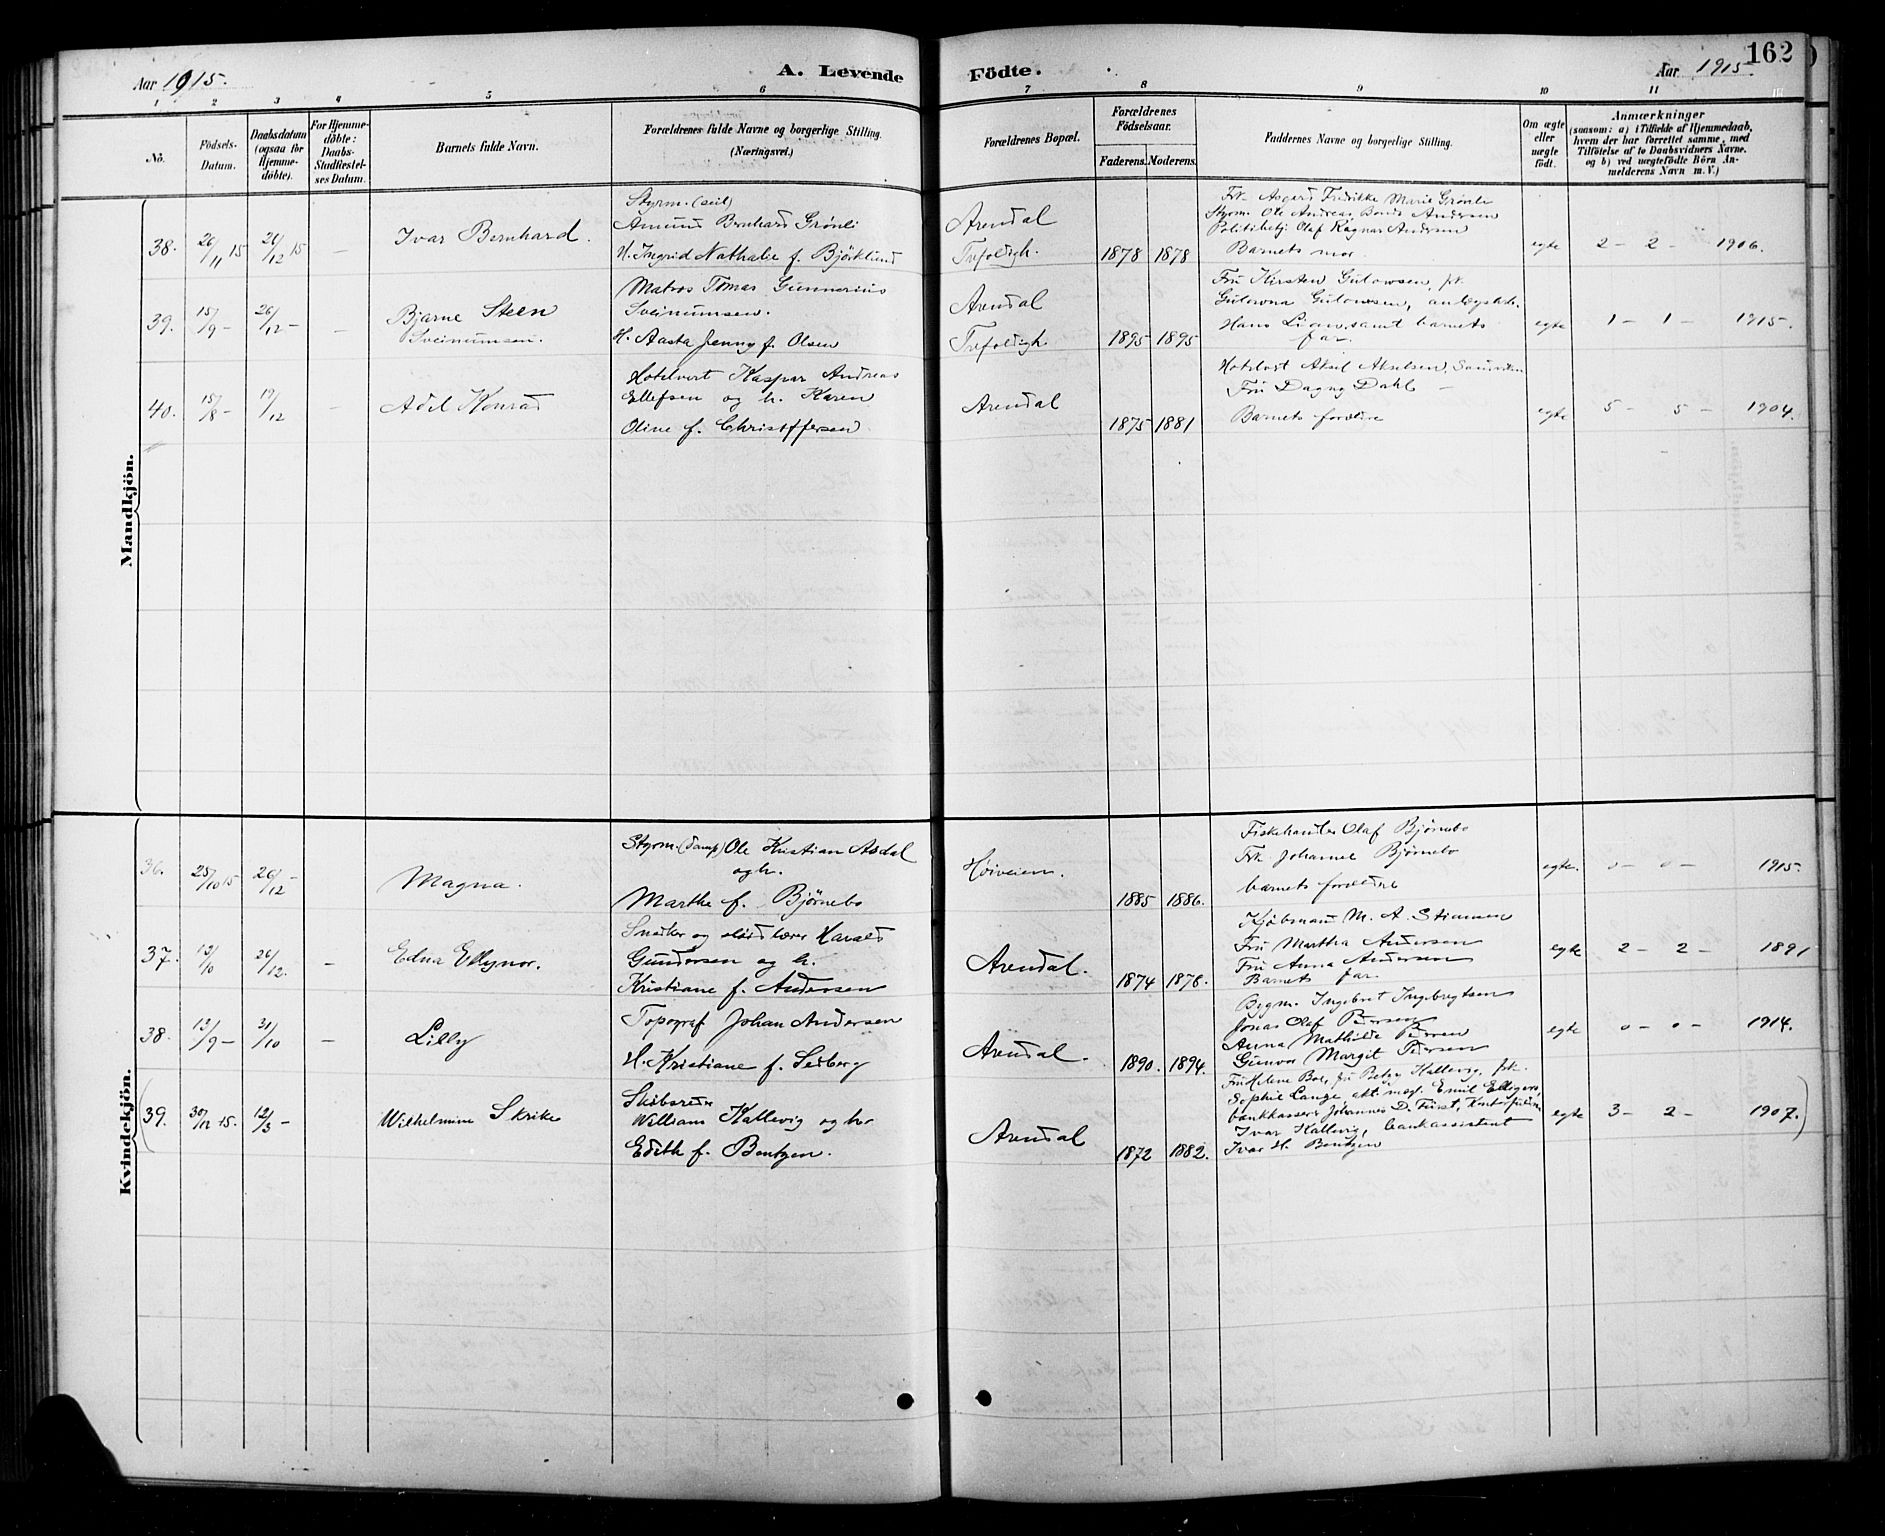 162
Aar 1915.
A. Levende Födte.
Aar 1915
1 2 3 4 5 6 7 8 9 10 11
No.
Födsels-Datum.
Daabsdatum (ogsaa for Hjemmedöbte).
For Hjemmedöbte: Daabs-Stadfæstelses Datum.
Barnets fulde Navn.
Forældrenes fulde Navne og borgerlige Stilling. (Næringsvei.)
Forældrenes Bopæl.
Forældrenes Födselsaar.
Faderens. Moderens.
Faddernes Navne og borgerlige Stilling.
Om ægte eller uægte födt.
Anmærkninger
(saasom: a) i Tilfælde af Hjemmedaab, hvem der har forrettet samme, med Tilföielse af to Daabsvidners Navne, og b) ved uægtefödte Börn Anmelderens Navn m. V.)
Mandkjön.
38. 20/11 15 26/12 15 — Ivar Bernhard.
Styrm. (seil)
Amund Bernhard Grönli
H. Ingrid Nathalie f. Björklund
Arendal
Trefoldigh. 1878 1878
Frk. Asgerd Fredrikke Marie Grönli
Styrm. Ole Andreas Andersen
Politibetj. Olaf Ragnar Andersen
Barnets mor.
egte 2 — 2 — 1906.
39. 15/9 — 26/12 — — Bjarne Steen
Sveinumsen.
Matros Tomas Gunnerius
Sveinumsen.
H. Aasta Jenny f. Olsen
Arendal
Trefoldigh 1895 1895
Fru Kirsten Gulowsen, frk.
Gulowsen,
Hans samt barnets
far.
egte 1 — 1 — 1915.
40. 15/8 — 19/12 — Adil Konrad
Hotelvert Kaspar Andreas
Ellefsen og h. Karen
Oline f. Christoffersen
Arendal 1875 1881
Hotelvert Aksel Akselsen,
Fru Dagny Dahl —
Barnets forældre
egte 5 — 5 — 1904.
Kvindekjön.
36. 25/10 15 26/12 Magna.
Styrm. (damp) Ole Kristian Asdal
og h.
Marthe f. Bjørnebo
Høiveien. 1885 1886.
Fiskehandler Olaf Bjørnebo
Frk. Johanne Bjørnebo
barnets forældre
egte. 0 — 0 — 1915.
37. 26/12. — Edna Ellynor.
Snedker og sløidlærer Harald
Gundersen og h.
Kristiane f. Andersen
Arendal. 1874 1876.
Kjøbmand M. A. Stiansen
Fru Martha Andersen
Fru Anna Andersen
Barnets far.
egte 2 — 2 — 1891
38. 13/9 — 31/10 — Lilly
Topograf Johan Andersen
H. Kristiane f. Sedberg
Arendal. 1890. 1894.
Bygm. Ingebret Ingebregtsen
Jonas Olaf Pedersen
Anna Mathilde Pedersen
Gunvor Margit Pedersen
egte 0 — 0 — 1914.
(39. 30/12 15. 12/3 — Wilhelmine Skrike
Skibsreder
William Kallevig og h.
Edith f. Bentzen.
Arendal 1872 1882.
Fru Helene Boe, fru Betzy Kallevig, frk.
Sophie Lange akt. mægl. Emil Ellingsen
bankkasserer Johannes D. Fürst,
Ivar Kallevig, bankassistent
Ivar H. Bentzen
egte 3 — 2 — 1907.)